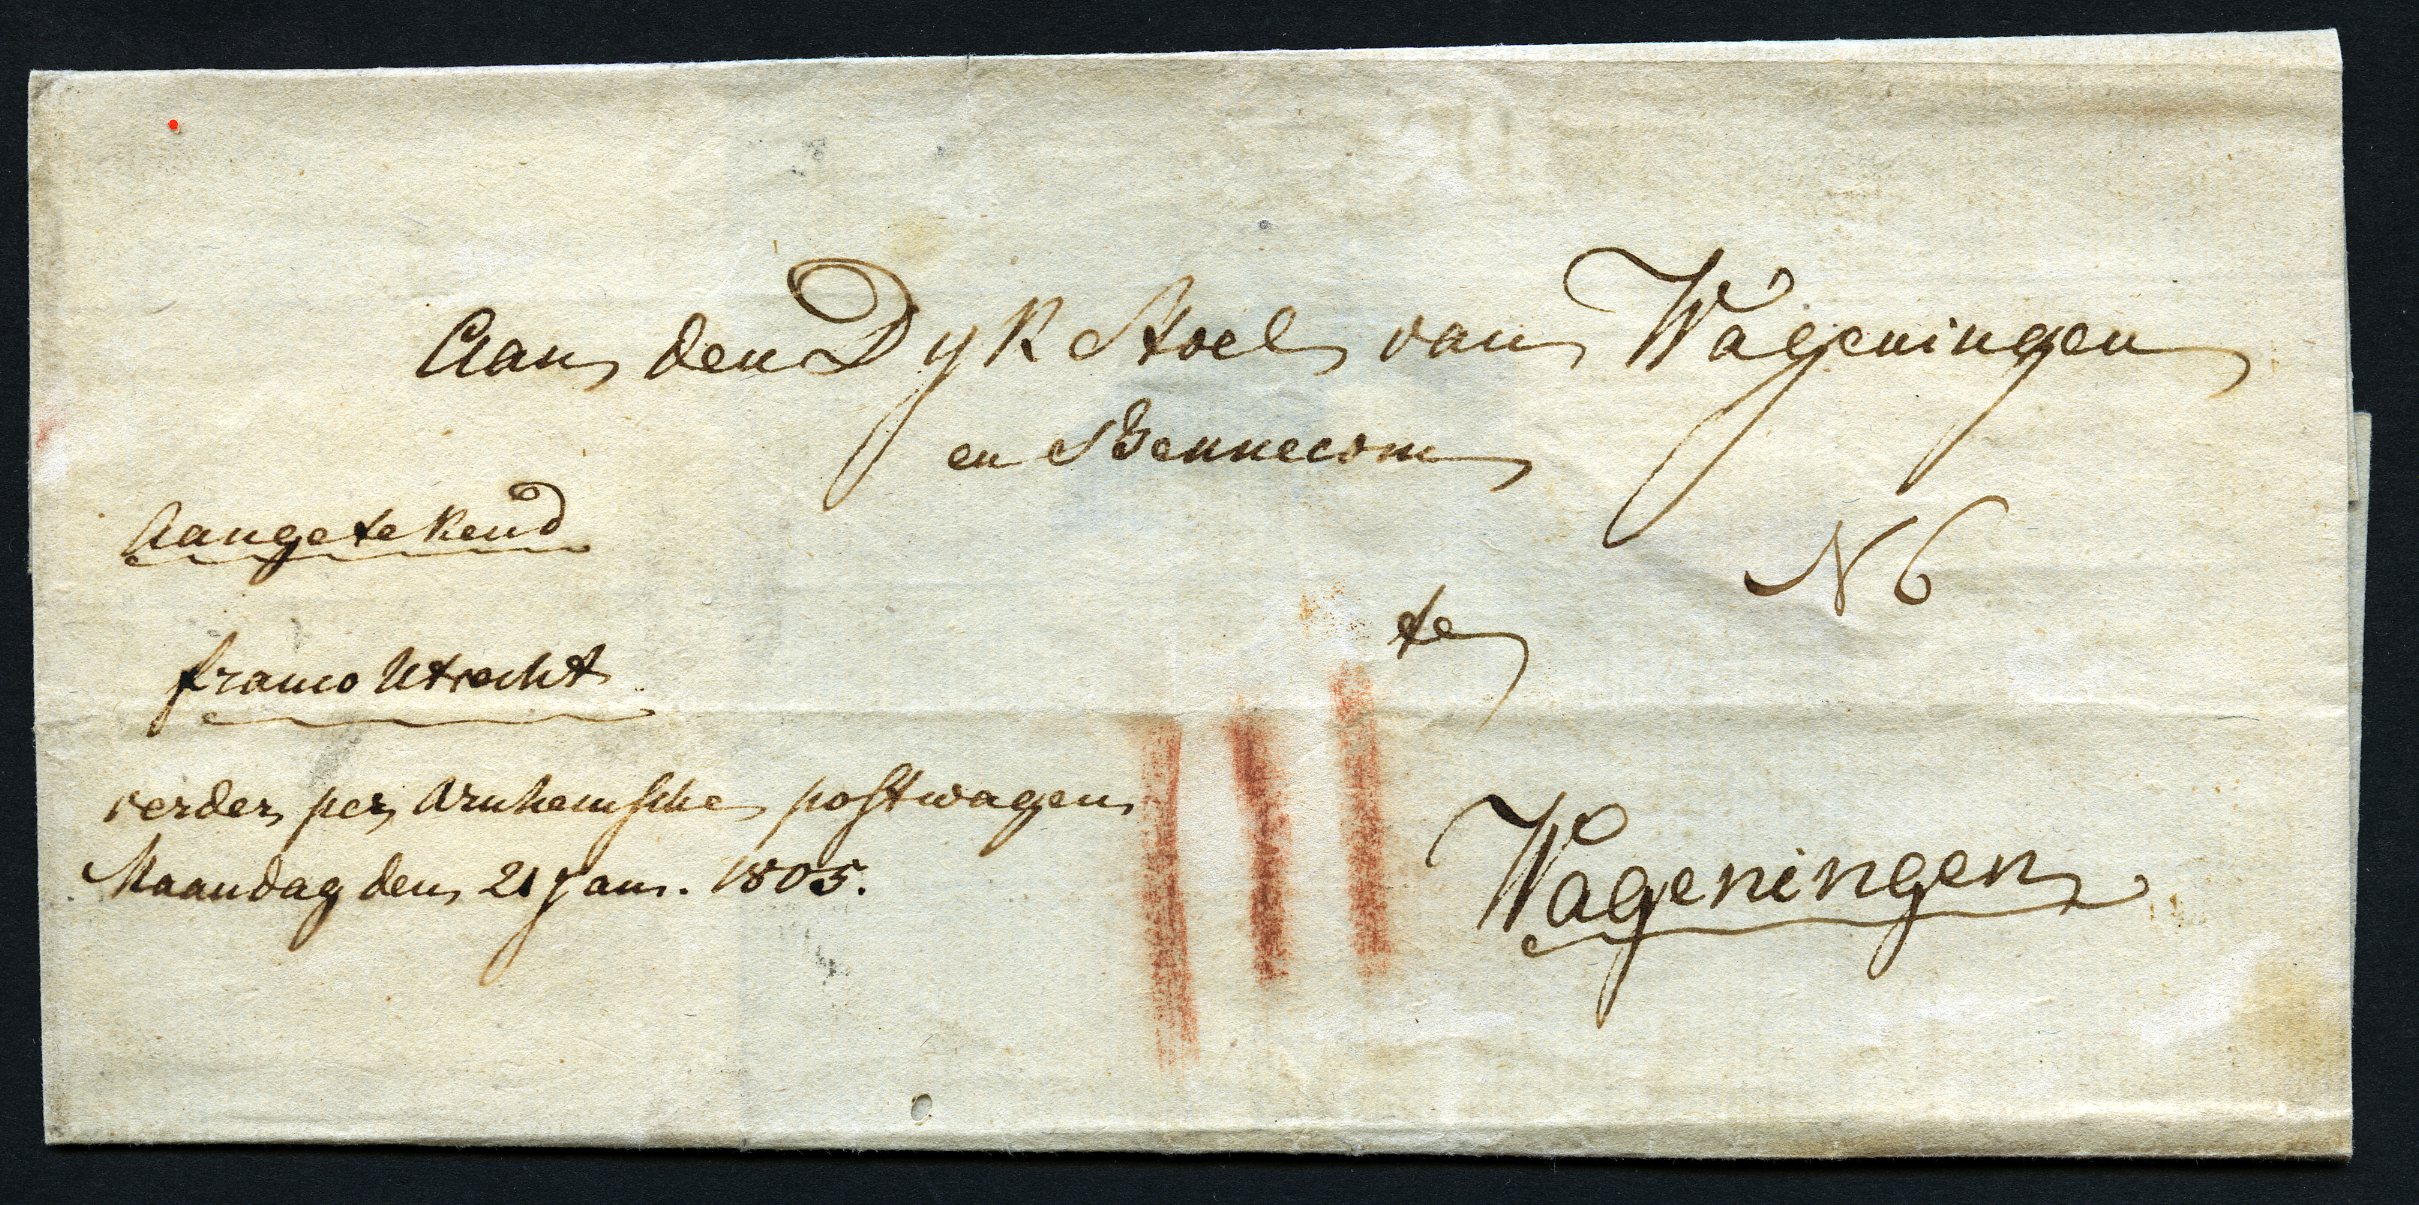 Aan den Dyk Stoel van Wageningen
en Bennecom
Aangetekend
N 6
te
franco Utrecht
verder per Arnhemsche postwagen
Maandag den 21 Jan. 1805.
Wageningen